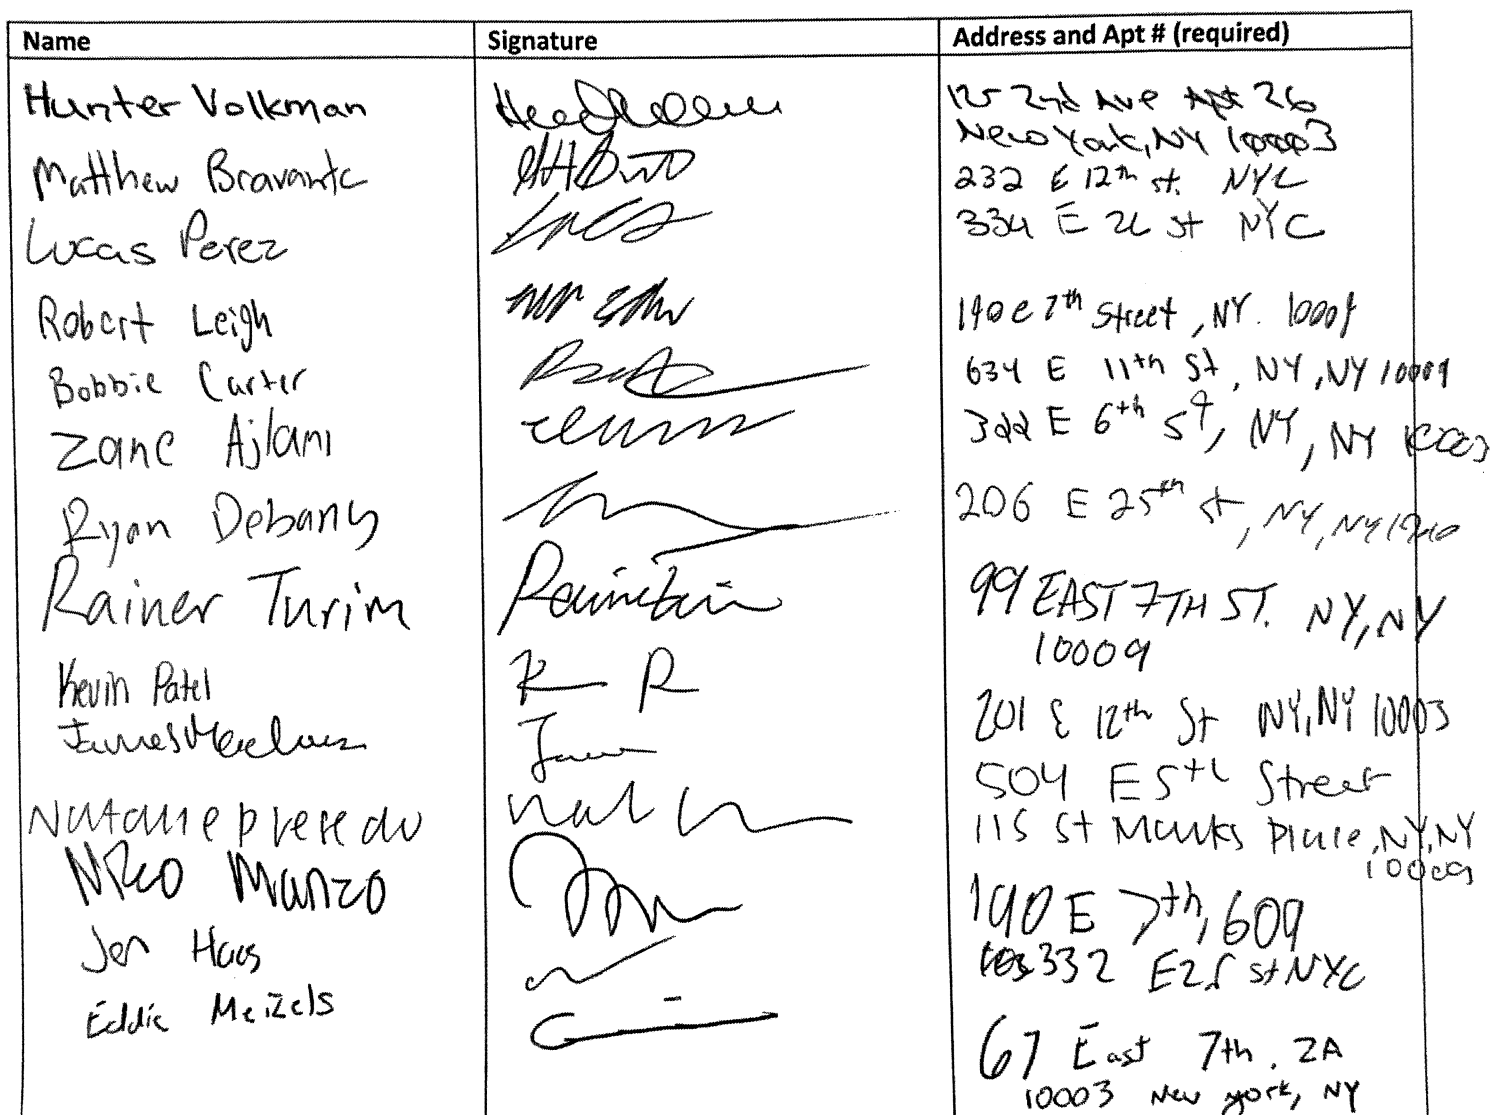 Name Signature Address and Apt # (required)
Hunter Volkman 125 2nd Ave Apt 26
New York, NY 10003
Matthew Bravante 232 E 12th st. NYC
Lucas Perez 334 E 26 st NYC
Robert Leigh 190 e 7th Street, NY. 10009
Bobbie Carter 634 E 11th St, NY, NY 10009
Zane Ajlani 322 E 6th St, NY, NY 10003
Ryan Debany 206 E 25th St, NY, NY
Rainer Turim 99 EAST 7TH ST. NY, NY
10009
Kevin Patel 201 E 12th St NY, NY 10003
James 504 E 5th Street
Natalie 115 St Marks Place, NY, NY
10009
Nico Manzo 190 E 7th, 609
Jen Haas 332 E 25 st NYC
Eddie Meizels 67 East 7th. 2A
10003 New York, NY